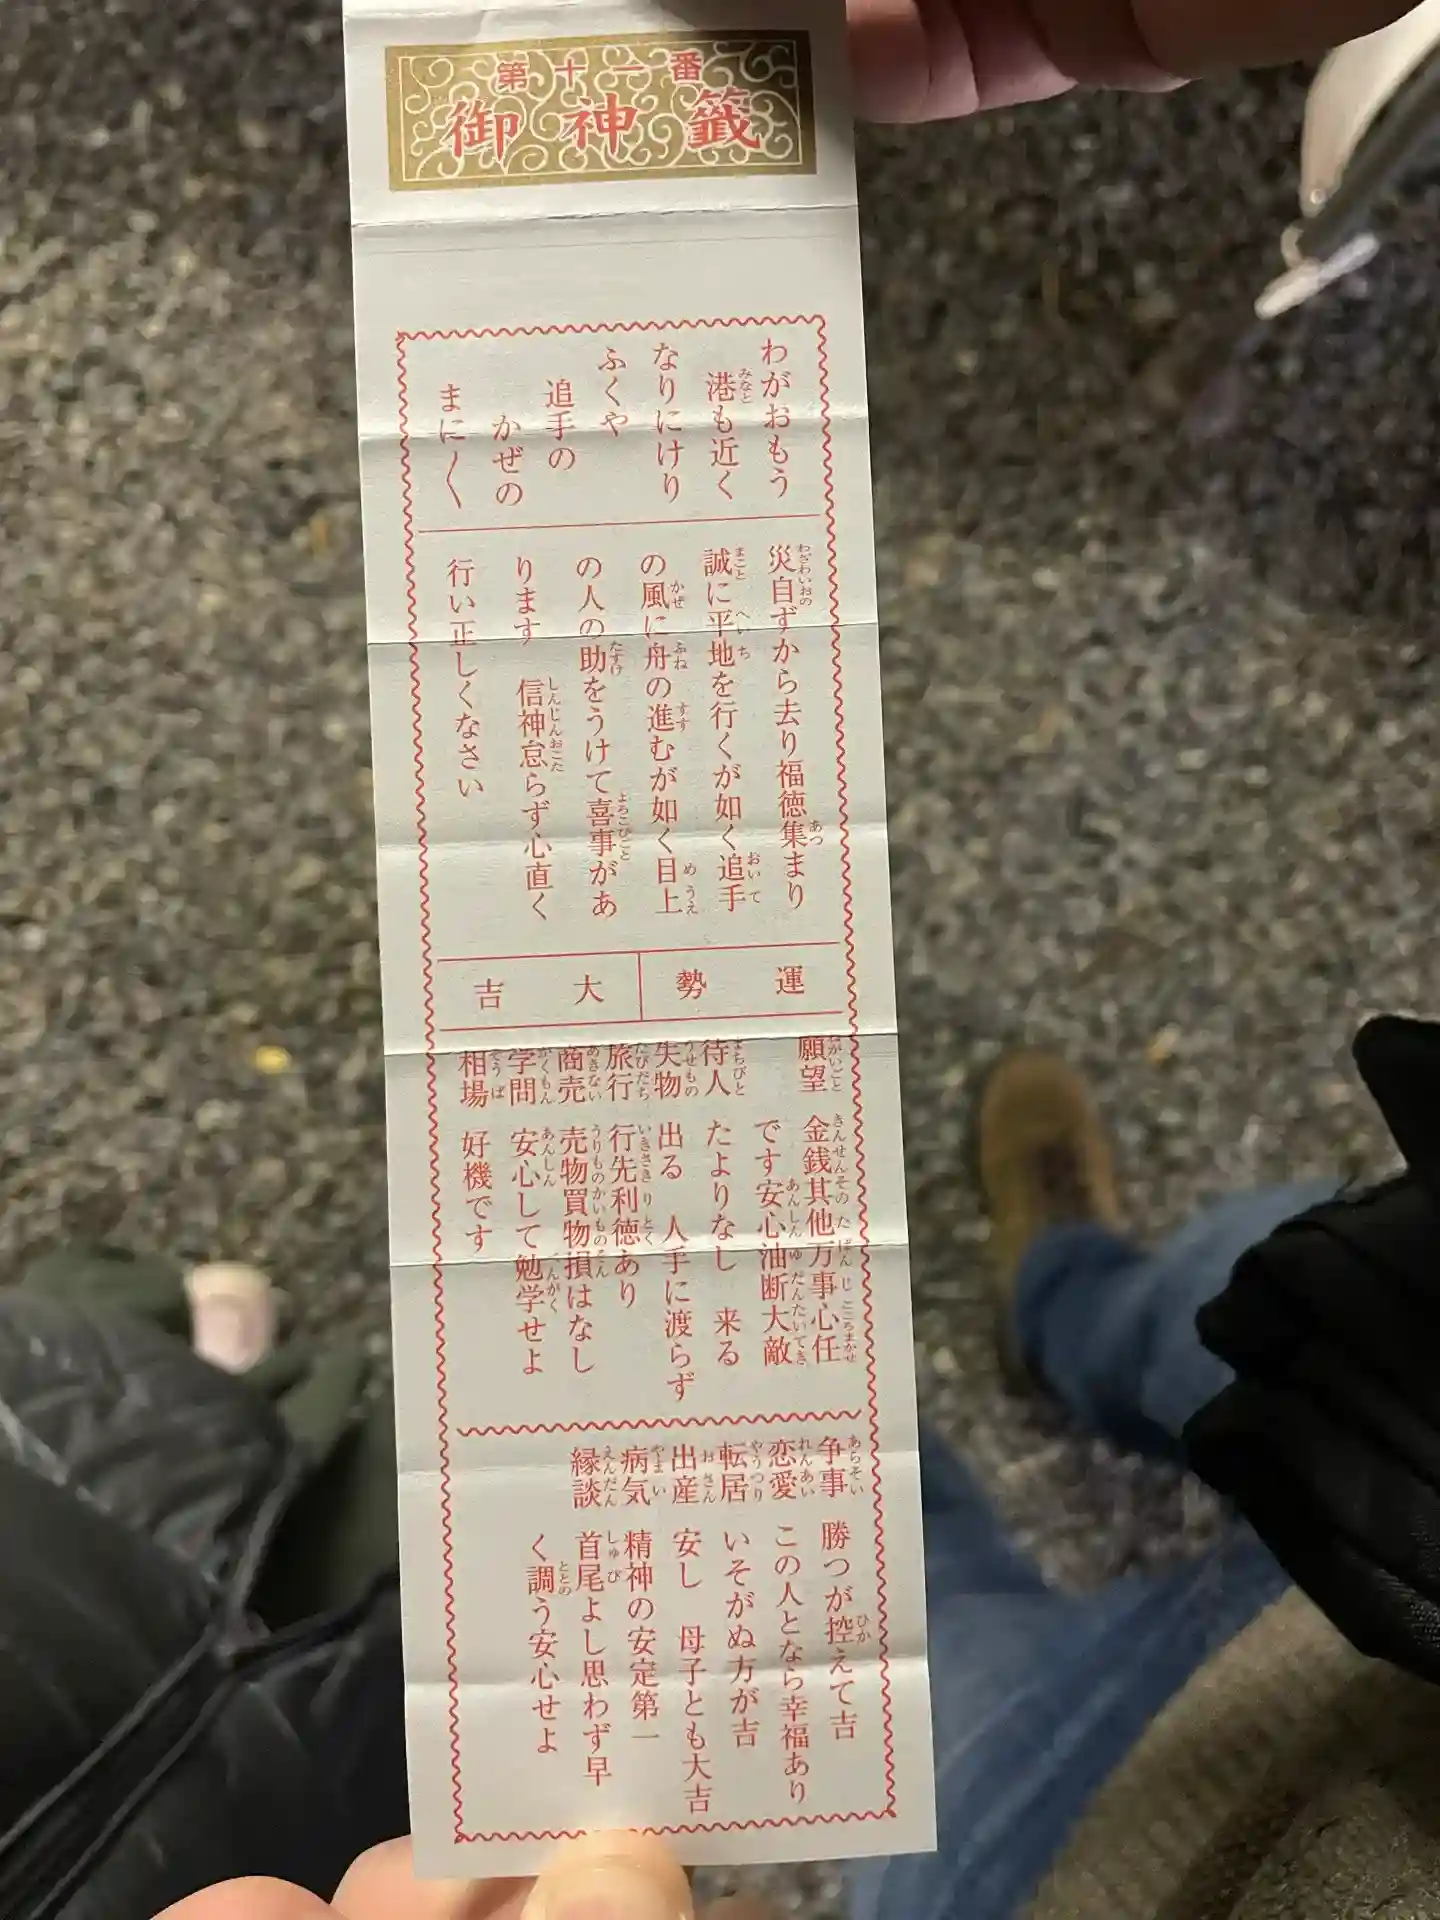 第十一番
御神籤
わがおもう
港も近く
なりにけり
ふくや
追手の
かぜの
まに〱
災自ずから去り福徳集まり
誠に平地を行くが如く追手
の風に舟の進むが如く目上
の人の助をうけて喜事があ
ります 信神怠らず心直く
行い正しくなさい
運勢 大吉
願望 金銭其他万事心任
です安心油断大敵
待人 たよりなし 来る
失物 出る 人手に渡らず
旅行 行先利徳あり
商売 売物買物損はなし
学問 安心して勉学せよ
相場 好機です
争事 勝つが控えて吉
恋愛 この人となら幸福あり
転居 いそがぬ方が吉
出産 安し 母子とも大吉
病気 精神の安定第一
縁談 首尾よし思わず早
く調う安心せよ